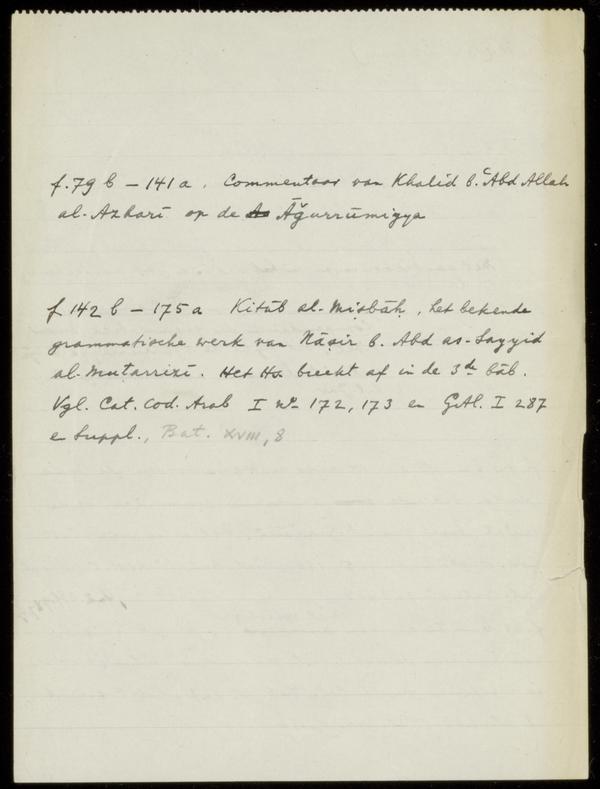 f. 79 b – 141 a. Commentaar van Khalid b. ʿAbd Allah
al-Azharī op de Āǧurrūmiyya
f 142 b – 175 a Kitāb al-Misbāḥ, het bekende
grammatische werk van Nāṣir b. Abd as-Sayyid
al-Muṭarrizī. Het Hs. breekt af in de 3de bāb.
Vgl. Cat. Cod. Arab I No 172, 173 en GAL. I 287
en Suppl., Bat. XVIII, 8